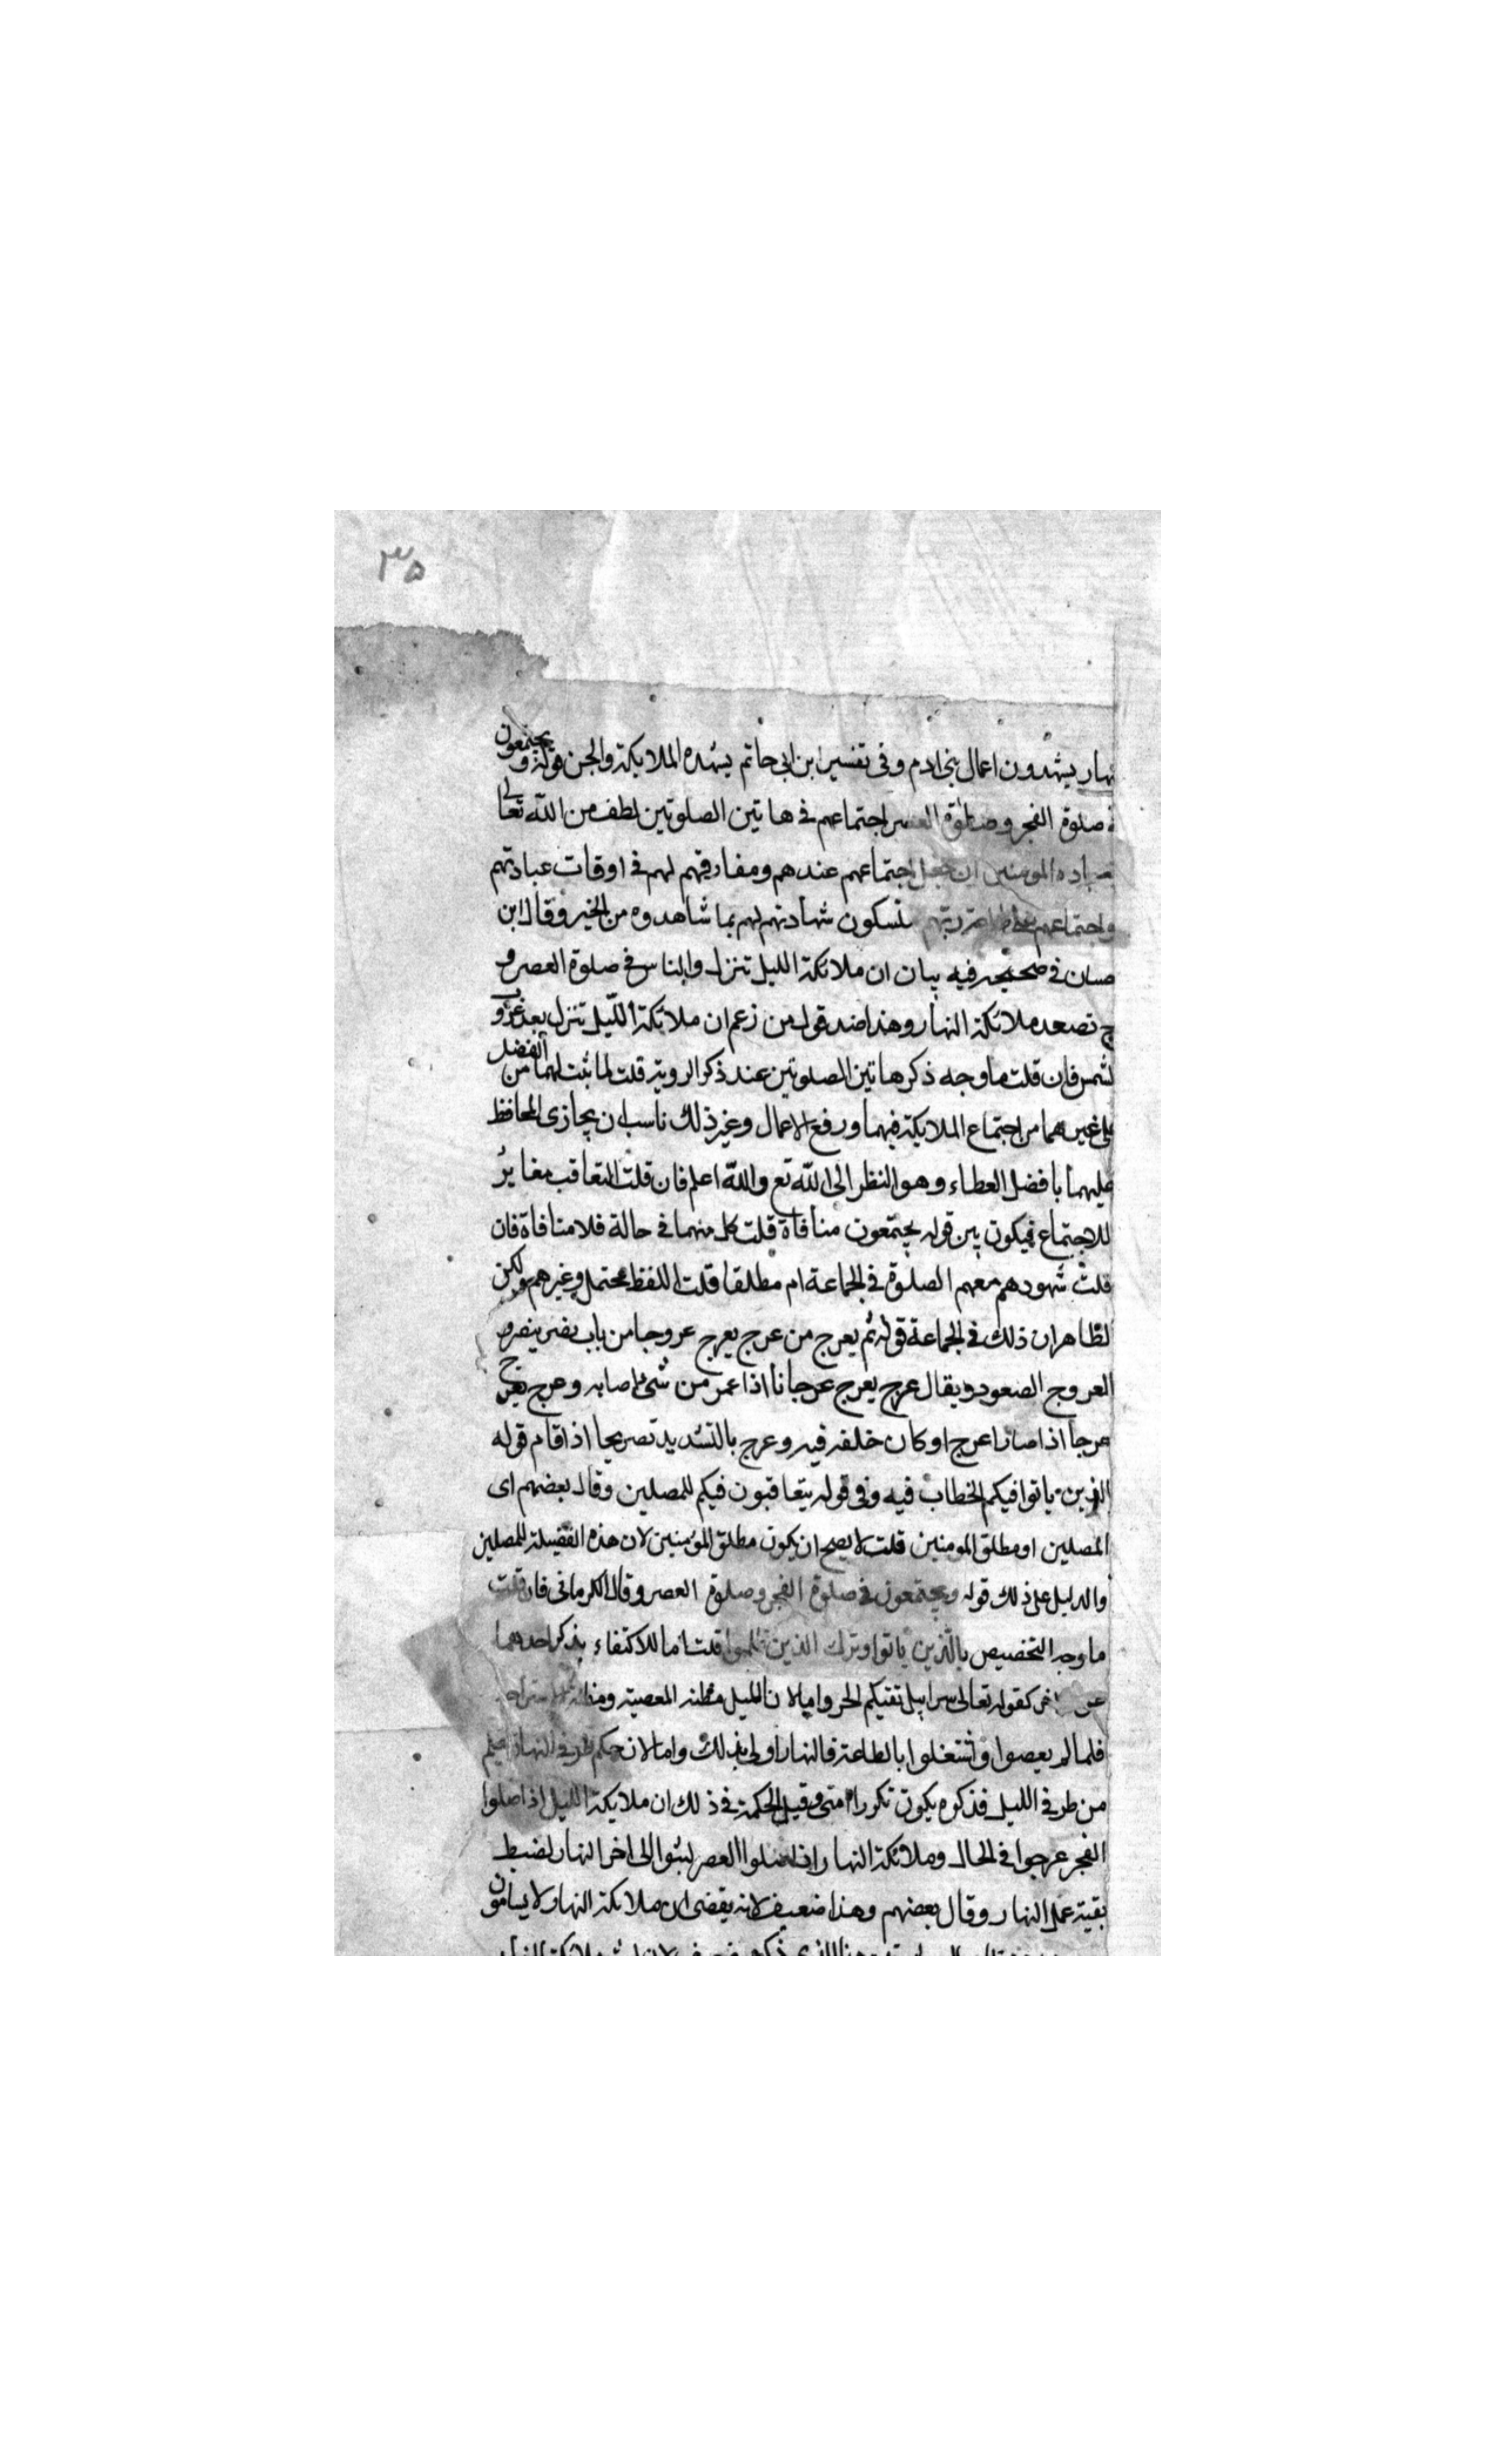 ٣٥
نهار يشهدون اعمال بنى ادم وفى تفسير ابن ابى حاتم يشهده الملايكة والجن قوله ويجتمعون
فى صلوة الفجر وصلوة العصر اجتماعهم فى هاتين الصلوتين لطف من الله تعالى
بعباده المومنين ان جعل اجتماعهم عندهم ومفارقتهم لهم فى اوقات عبادتهم
واجتماعهم على طاعة ربهم لتسكون شهادتهم لهم بما شاهدوه من الخير وقال ابن
حسان فى صحيحه فيه بيان ان ملائكة الليل تنزل والناس فى صلوة العصر و
ح تصعد ملائكة النهار وهذا ضد قول من زعم ان ملائكة الليل تنزل بعد غروب
لشمس فان قلت ما وجه ذكر هاتين الصلوتين عند ذكر الروية قلت لما ثبت لهما من الفضل
على غيرهما من اجتماع الملايكة فيهما ورفع الاعمال وغير ذلك ناسب ان يجازى المحافظ
عليهما بافضل العطاء وهو النظر الى الله تع والله اعلم فان قلت التعاقب مغاير
للاجتماع فيكون بين قوله يجتمعون منافاة قلت كل منهما فى حالة فلا منافاة فان
قلت شهودهم معهم الصلوة فى الجماعة ام مطلقا قلت اللفظ محتمل وغيرهم ولكن
لظاهر ان ذلك فى الجماعة قوله ثم يعرج من عرج يعرج عروجا من باب نصر ينصر و
العروج الصعود ويقال عرج يعرج عرجانا اذا غمز من شىء اصابه وعرج يعرج
عرجا اذا صار اعرج او كان خلقه فيه وعرج بالتشديد تصريحا اذا قام قوله
الذين ياتوا فيكم الخطاب فيه وفى قوله يتعاقبون فيكم للمصلين وقال بعضهم اى
المصلين او مطلق المومنين قلت لا يصح ان يكون مطلق المؤمنين لان هذه الفضيلة للمصلين
والدليل على ذلك قوله ويجتمعون فى صلوة الفجر وصلوة العصر وقال الكرمانى فان قلت
ما وجه التخصيص بالذين ياتوا وترك الذين ظلموا قلت اما للاكتفاء بذكر احدهما
عن الاخر كقوله تعالى سرابيل تقيكم الحر واما لان الليل مظنه المعصية ومظنة الاستراحة
فلما لم يعصوا واشتغلوا بالطاعة فالنهار اولى بذلك واما لان حكم طرفى النهار يعلم
من طرفى الليل فذكره يكون تكررا متى وقيل الحكمة فى ذلك ان ملايكة الليل اذا صلوا
الفجر عرجوا فى الحال وملائكة النهار اذا صلوا العصر لبثوا الى اخر النهار لضبط
بقية عمل النهار وقال بعضهم وهذا ضعيف لانه يقضى ان ملائكة النهار لا يسامون